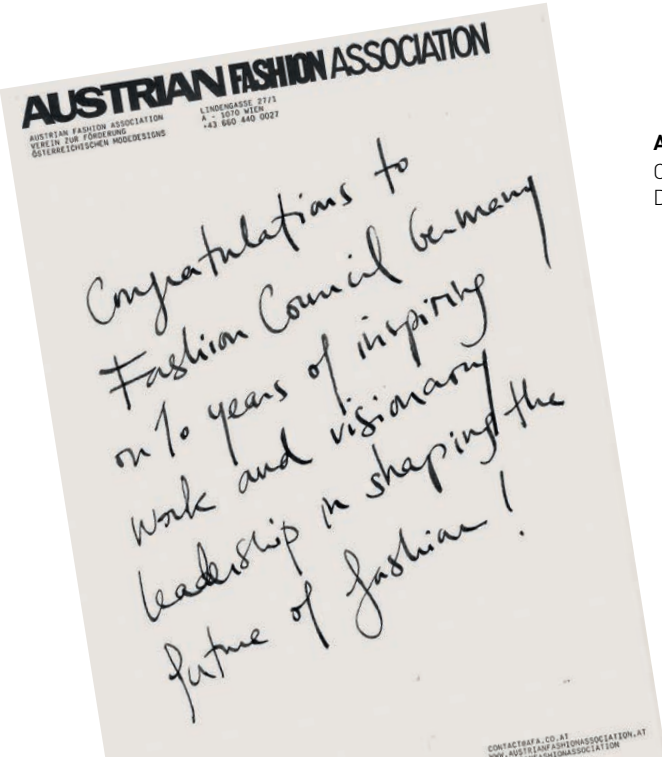 AUSTRIAN FASHION ASSOCIATION
AUSTRIAN FASHION ASSOCIATION
VEREIN ZUR FÖRDERUNG
ÖSTERREICHISCHEN MODEDESIGNS
LINDENGASSE 27/1
A - 1070 WIEN
+43 660 440 0027
Congratulations to
Fashion Council Germany
on 10 years of inspiring
work and visionary
leadership in shaping the
future of fashion!
CONTACT@AFA.CO.AT
WWW.AUSTRIANFASHIONASSOCIATION.AT